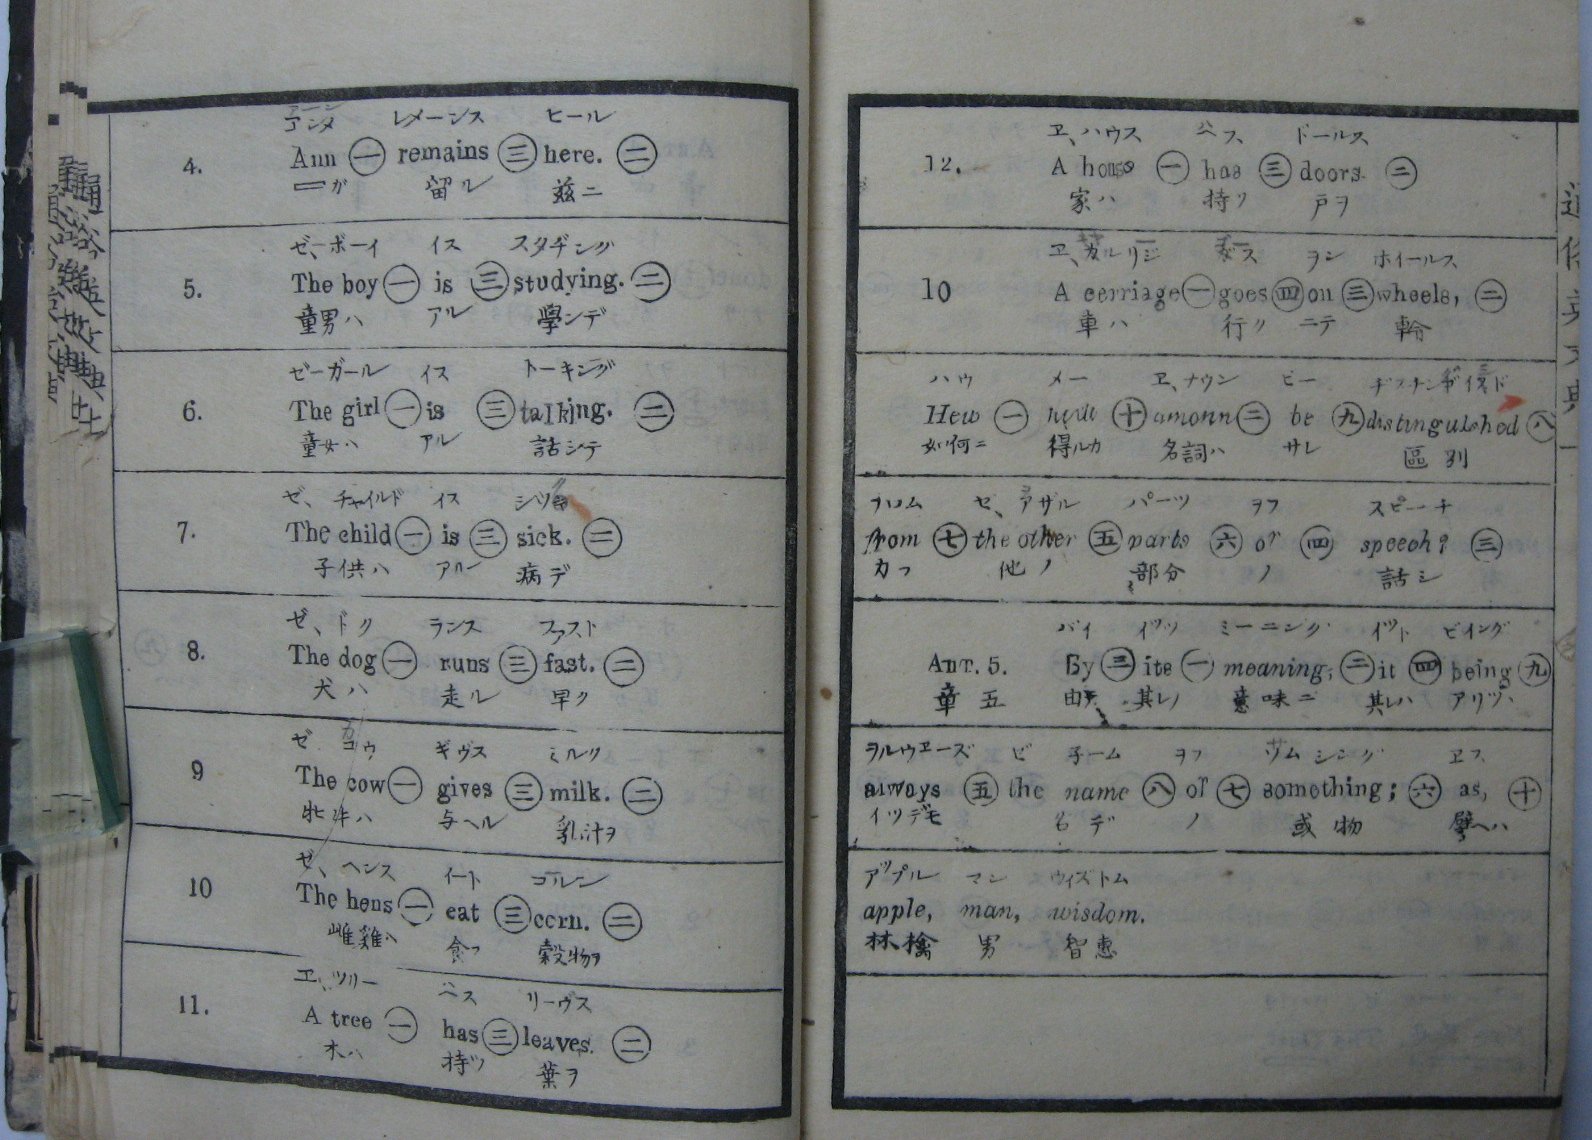 レメーンス ヒール
4. Ann ㊀ remains ㊂ here. ㊁
ガ 留ル 茲ニ
ゼ、ボーイ イス スタヂング
5. The boy ㊀ is ㊂ studying. ㊁
童男ハ アル 學ンデ
ゼーガール イス トーキング
6. The girl ㊀ is ㊂ talking. ㊁
童女ハ アル 話シテ
ゼ、チャイルド イス
7. The child ㊀ is ㊂ sick. ㊁
子供ハ アル 病デ
ゼ、ドグ ランス ファスト
8. The dog ㊀ runs ㊂ fast. ㊁
犬ハ 走ル 早ク
ゼ ギヴス ミルク
9 The cow ㊀ gives ㊂ milk. ㊁
牝牛ハ 与ヘル 乳汁ヲ
ゼ、ヘンス イート コルン
10 The hens ㊀ eat ㊂ corn. ㊁
雌雞ハ 食フ 穀物ヲ
エ、ツリー ハス リーヴス
11. A tree ㊀ has ㊂ leaves. ㊁
木ハ 持ツ 葉ヲ
エ、ハウス ハス ドールス
12. A house ㊀ has ㊂ doors. ㊁
家ハ 持ツ 戸ヲ
ヲン ホイールス
10 A cerriage ㊀ goes ㊃ on ㊂ wheels, ㊁
車ハ 行ク ニテ 輪
ハウ メー エ、ナウン ビー
Hew ㊀ ㊉ amonn ㊁ be ㊈ distinguished ㊇
如何ニ 得ルカ 名詞ハ サレ 區別
フロム ゼ、アザル パーツ ヲフ スピーチ
from ㊆ the other ㊄ parts ㊅ or ㊃ speech? ㊂
他ノ 部分 ノ 話シ
バイ イツツ ミーニング イット ビイング
ART. 5. By ㊂ its ㊀ meaning; ㊁ it ㊃ being ㊈
章 五 由 其レノ 意味ニ 其レハ
ヲルウエーズ ゼ ネーム ヲフ サムシング エス
always ㊄ the name ㊇ of ㊆ something; ㊅ as, ㊉
イツデモ 名デ ノ 或物 譬ヘハ
アップル マン ウィズドム
apple, man, wisdom.
林檎 男 智惠